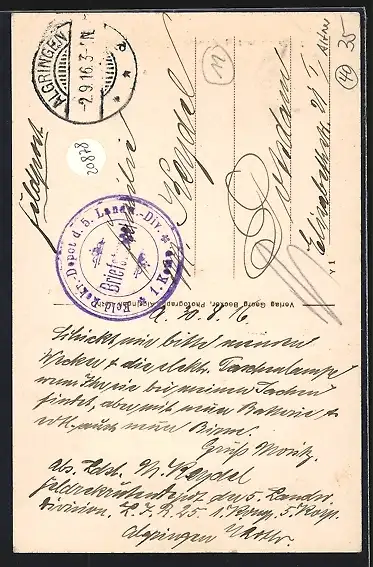 ALGRINGEN
-2.9.16.3-4N.
Feldpost
20878
Familie
M. Keydel
Potsdam
Elisabethstr. 21 I
11
40
35
Feld Rekr.-Depot d. 5. Landw.-Div.
* 1. Komp. *
Briefst
Verlag Georg Böcker, Photograph, Algringen
Y 1
A. 30.8.16
Schickt mir bitte meinen
Wecker & die elektr. Taschenlampe
wenn Ihr sie bei meinen Sachen
findet, aber mit neuer Batterie &
evtl. auch neuer Birne.
Gruß Moritz.
Abs. Ldst. M. Keydel
Feldrekrutendepot der 5. Landw.
Division. L.I.R. 25 1. Komp. 5. Korp.
Algringen